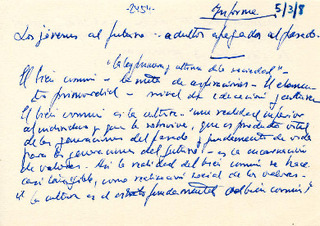 -2454-
Informe 5/3/8
Los jóvenes al futuro - adultos apegados al pasado.
"La legitimación y altura de la sociedad" -
El bien común - la meta de aspiraciones - El elemen-
to primordial - nivel de educación y cultura
El bien común es la cultura - "una realidad superior
al individuo y que la sobrevive, que es producto vital
de las generaciones del pasado y fundamento de vida
para las generaciones del futuro" - es la encarnación
de valores - Así la realidad del bien común se hace
casi tangible, como realización social de los valores -
la cultura es el fundamental del bien común?